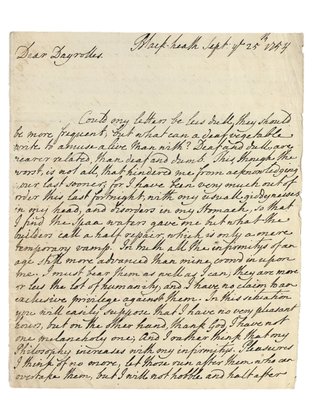 Black-heath Sept. ye 25th 1754
Dear Dayrolles.
Could my letters be less dull, they should
be more frequent, but what can a deaf vegetable
write to amuse a live man with? Deaf and dull, are
nearer related, than deaf and dumb. This though the
worst, is not all, that hindered me from acknowledging
your last sooner, for I have been very much out of
order this last fortnight, with my usual giddynesses
in my head, and disorders in my Stomach, so that
I find the Spaa waters gave me but what the
builders call a half repair, which is only a mere
temporary vamp. In truth all the infirmitys of an
age still more advanced than mine, crowd in upon
me. I must bear them as well as I can, they are more
or less the lot of humanity, and I have no claim to an
exclusive privilege against them. In this situation
you will easily suppose that I have no very pleasant
hours, but on the other hand, thank God I have not
one melancholy one, And I rather think that my
Philosophy increases with my infirmitys. Pleasures
I think of no more, let those run after them who can
overtake them, but I will not hobble and halt after